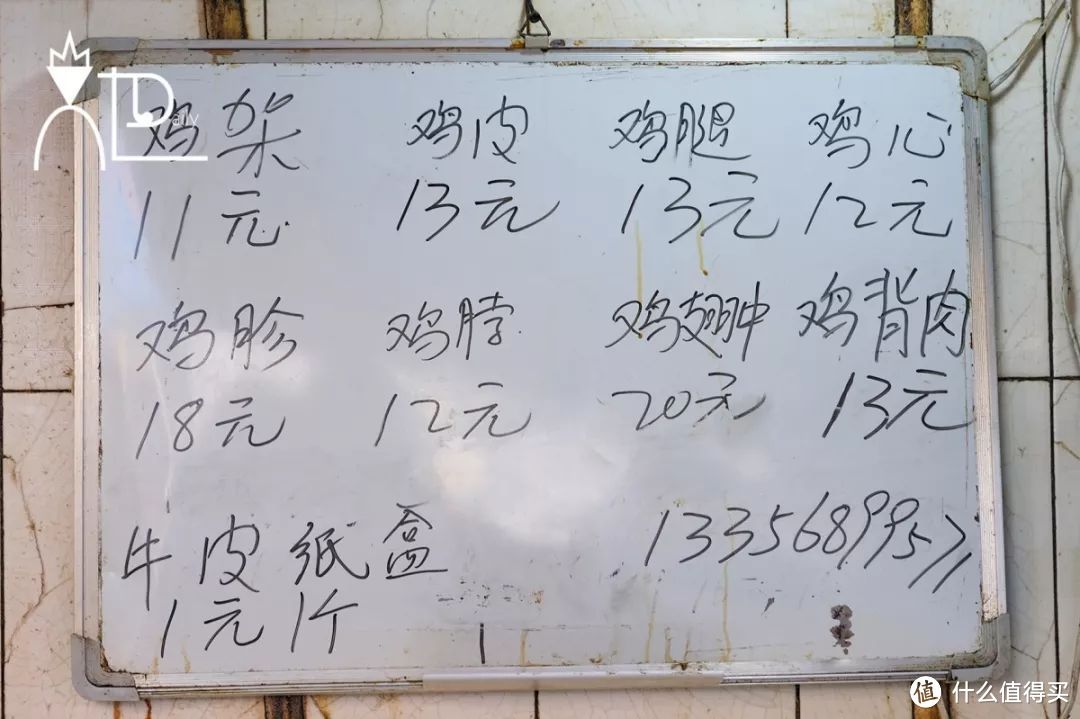 鸡架 鸡皮 鸡腿 鸡心
11元 13元 13元 12元
鸡胗 鸡脖 鸡翅中 鸡背肉
18元 12元 20元 13元
牛皮纸盒
1元1个
Daily
值 什么值得买